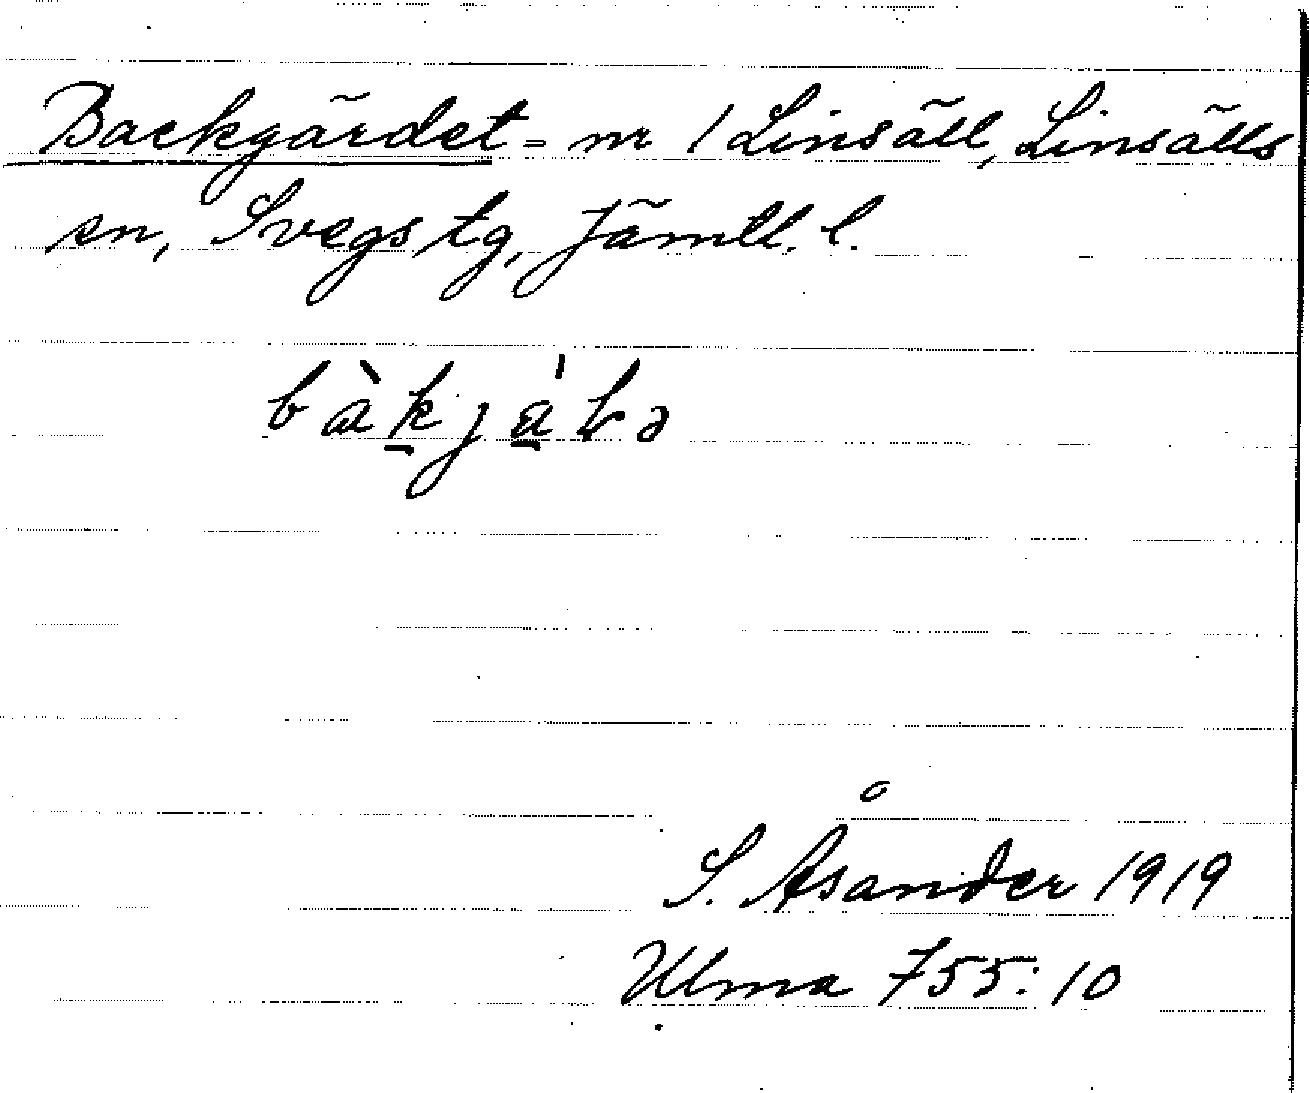 Backgärdet = nr 1 Linsäll, Linsälls
sn, Svegs tg, Jämtl. l.
S. Åsander 1919
Ulma 755:10